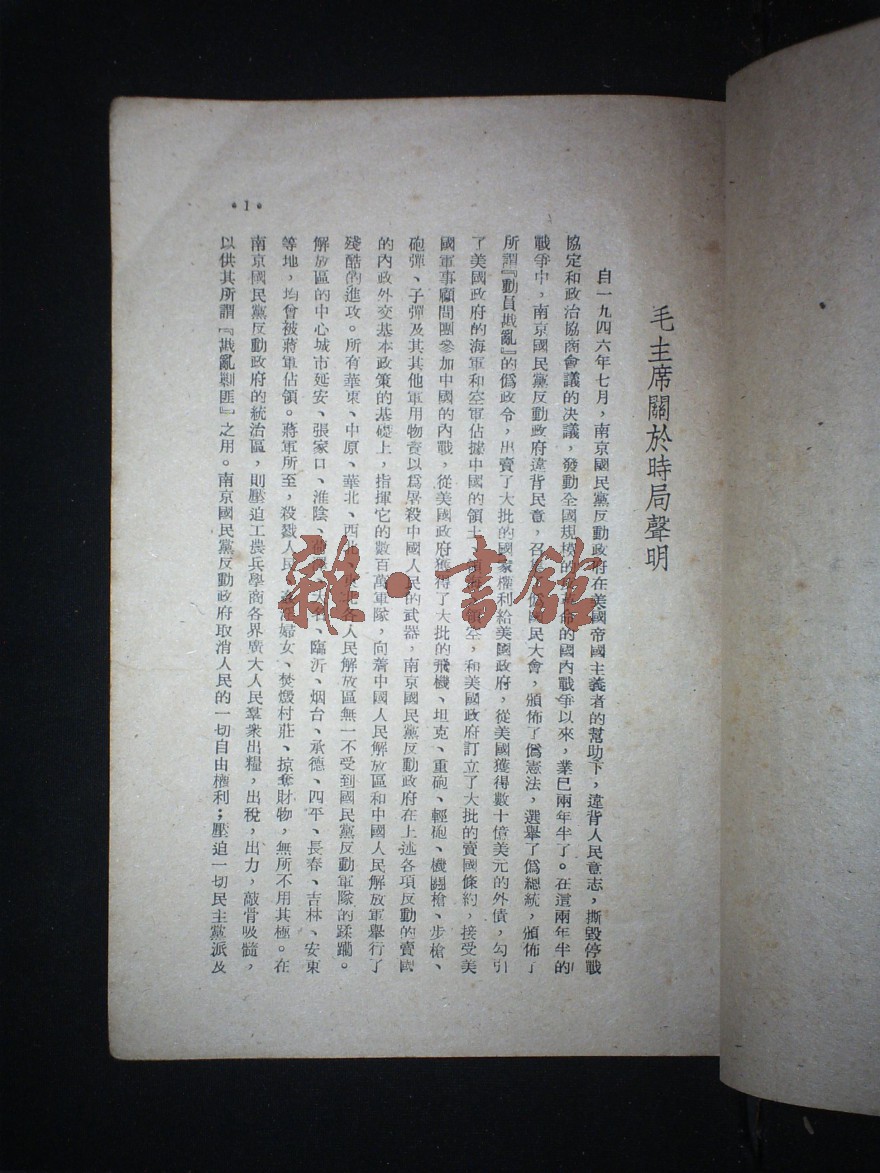 毛主席關於時局聲明
自一九四六年七月，南京國民黨反動政府在美國帝國主義者的幫助下，違背人民意志，撕毀停戰
協定和政治協商會議的決議，發動全國規模的反革命的國內戰爭以來，業已兩年半了。在這兩年半的
戰爭中，南京國民黨反動政府違背民意，召集了僞國民大會，頒佈了僞憲法，選舉了僞總統，頒佈了
所謂『動員戡亂』的僞政令，出賣了大批的國家權利給美國政府，從美國獲得數十億美元的外債，勾引
了美國政府的海軍和空軍佔據中國的領土領海領空，和美國政府訂立了大批的賣國條約，接受美
國軍事顧問團參加中國的內戰，從美國政府獲得了大批的飛機、坦克、重砲、輕砲、機關槍、步槍、
砲彈、子彈及其其他軍用物資以爲屠殺中國人民的武器，南京國民黨反動政府在上述各項反動的賣國
的內政外交基本政策的基礎上，指揮它的數百萬軍隊，向着中國人民解放區和中國人民解放軍舉行了
殘酷的進攻。所有華東、中原、華北、西北、東北各人民解放區無一不受到國民黨反動軍隊的蹂躪。
解放區的中心城市延安、張家口、淮陰、大名、臨沂、烟台、承德、四平、長春、吉林、安東
等地，均曾被蔣軍佔領。蔣軍所至，殺戮人民，婦女、焚燬村莊、掠奪財物，無所不用其極。在
南京國民黨反動政府的統治區，則壓迫工農兵學商各界廣大人民羣衆出糧，出稅，出力，敲骨吸髓，
以供其所謂『戡亂剿匪』之用。南京國民黨反動政府取消人民的一切自由權利；壓迫一切民主黨派及
•1•
雜•書館